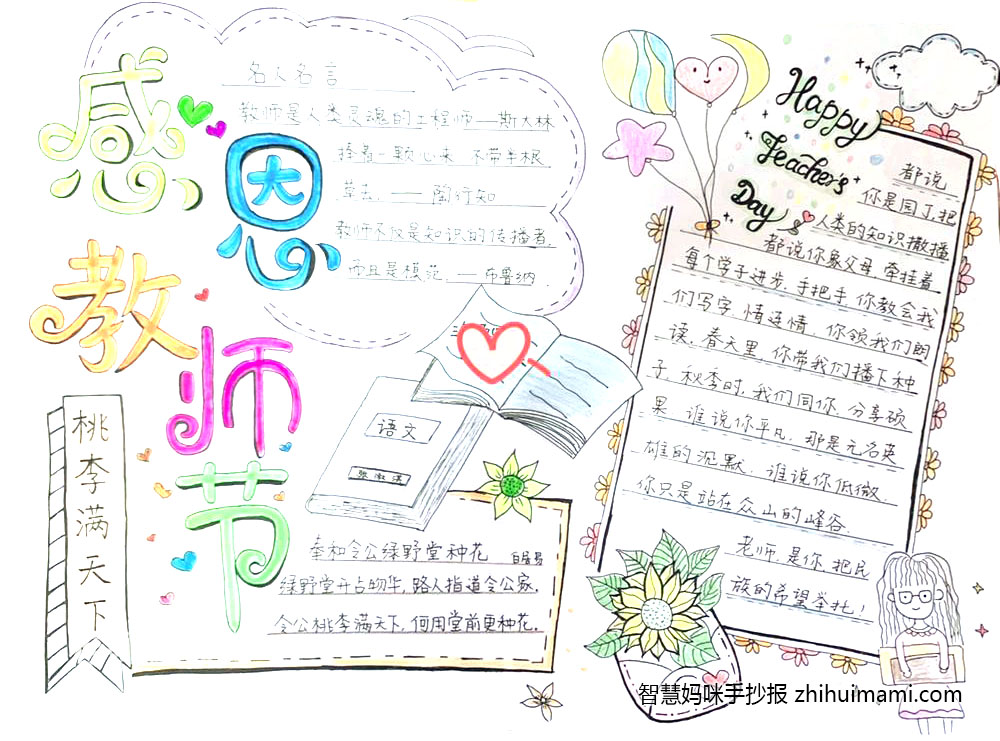 感恩
教师节
名人名言
教师是人类灵魂的工程师——斯大林
捧着一颗心来 不带半根
草去. —— 陶行知
教师不仅是知识的传播者,
而且是模范. —布鲁纳
语文
桃李满天下
奉和令公绿野堂种花 白居易
绿野堂开占物华, 路人指道令公家.
令公桃李满天下, 何用堂前更种花.
Happy
Teacher's
Day
都说
你是园丁,把
人类的知识撒播
都说你象父母 牵挂着
每个学子进步. 手把手 你教会我
们写字 情连情 你领我们朗
读. 春天里, 你带我们播下种
子, 秋季时, 我们同你 分享硕
果 谁说你平凡. 那是无名英
雄的沉默. 谁说你低微.
你只是站在众山的峰谷
老师. 是你. 把民
族的希望举托!
智慧妈咪手抄报 zhihuimami.com